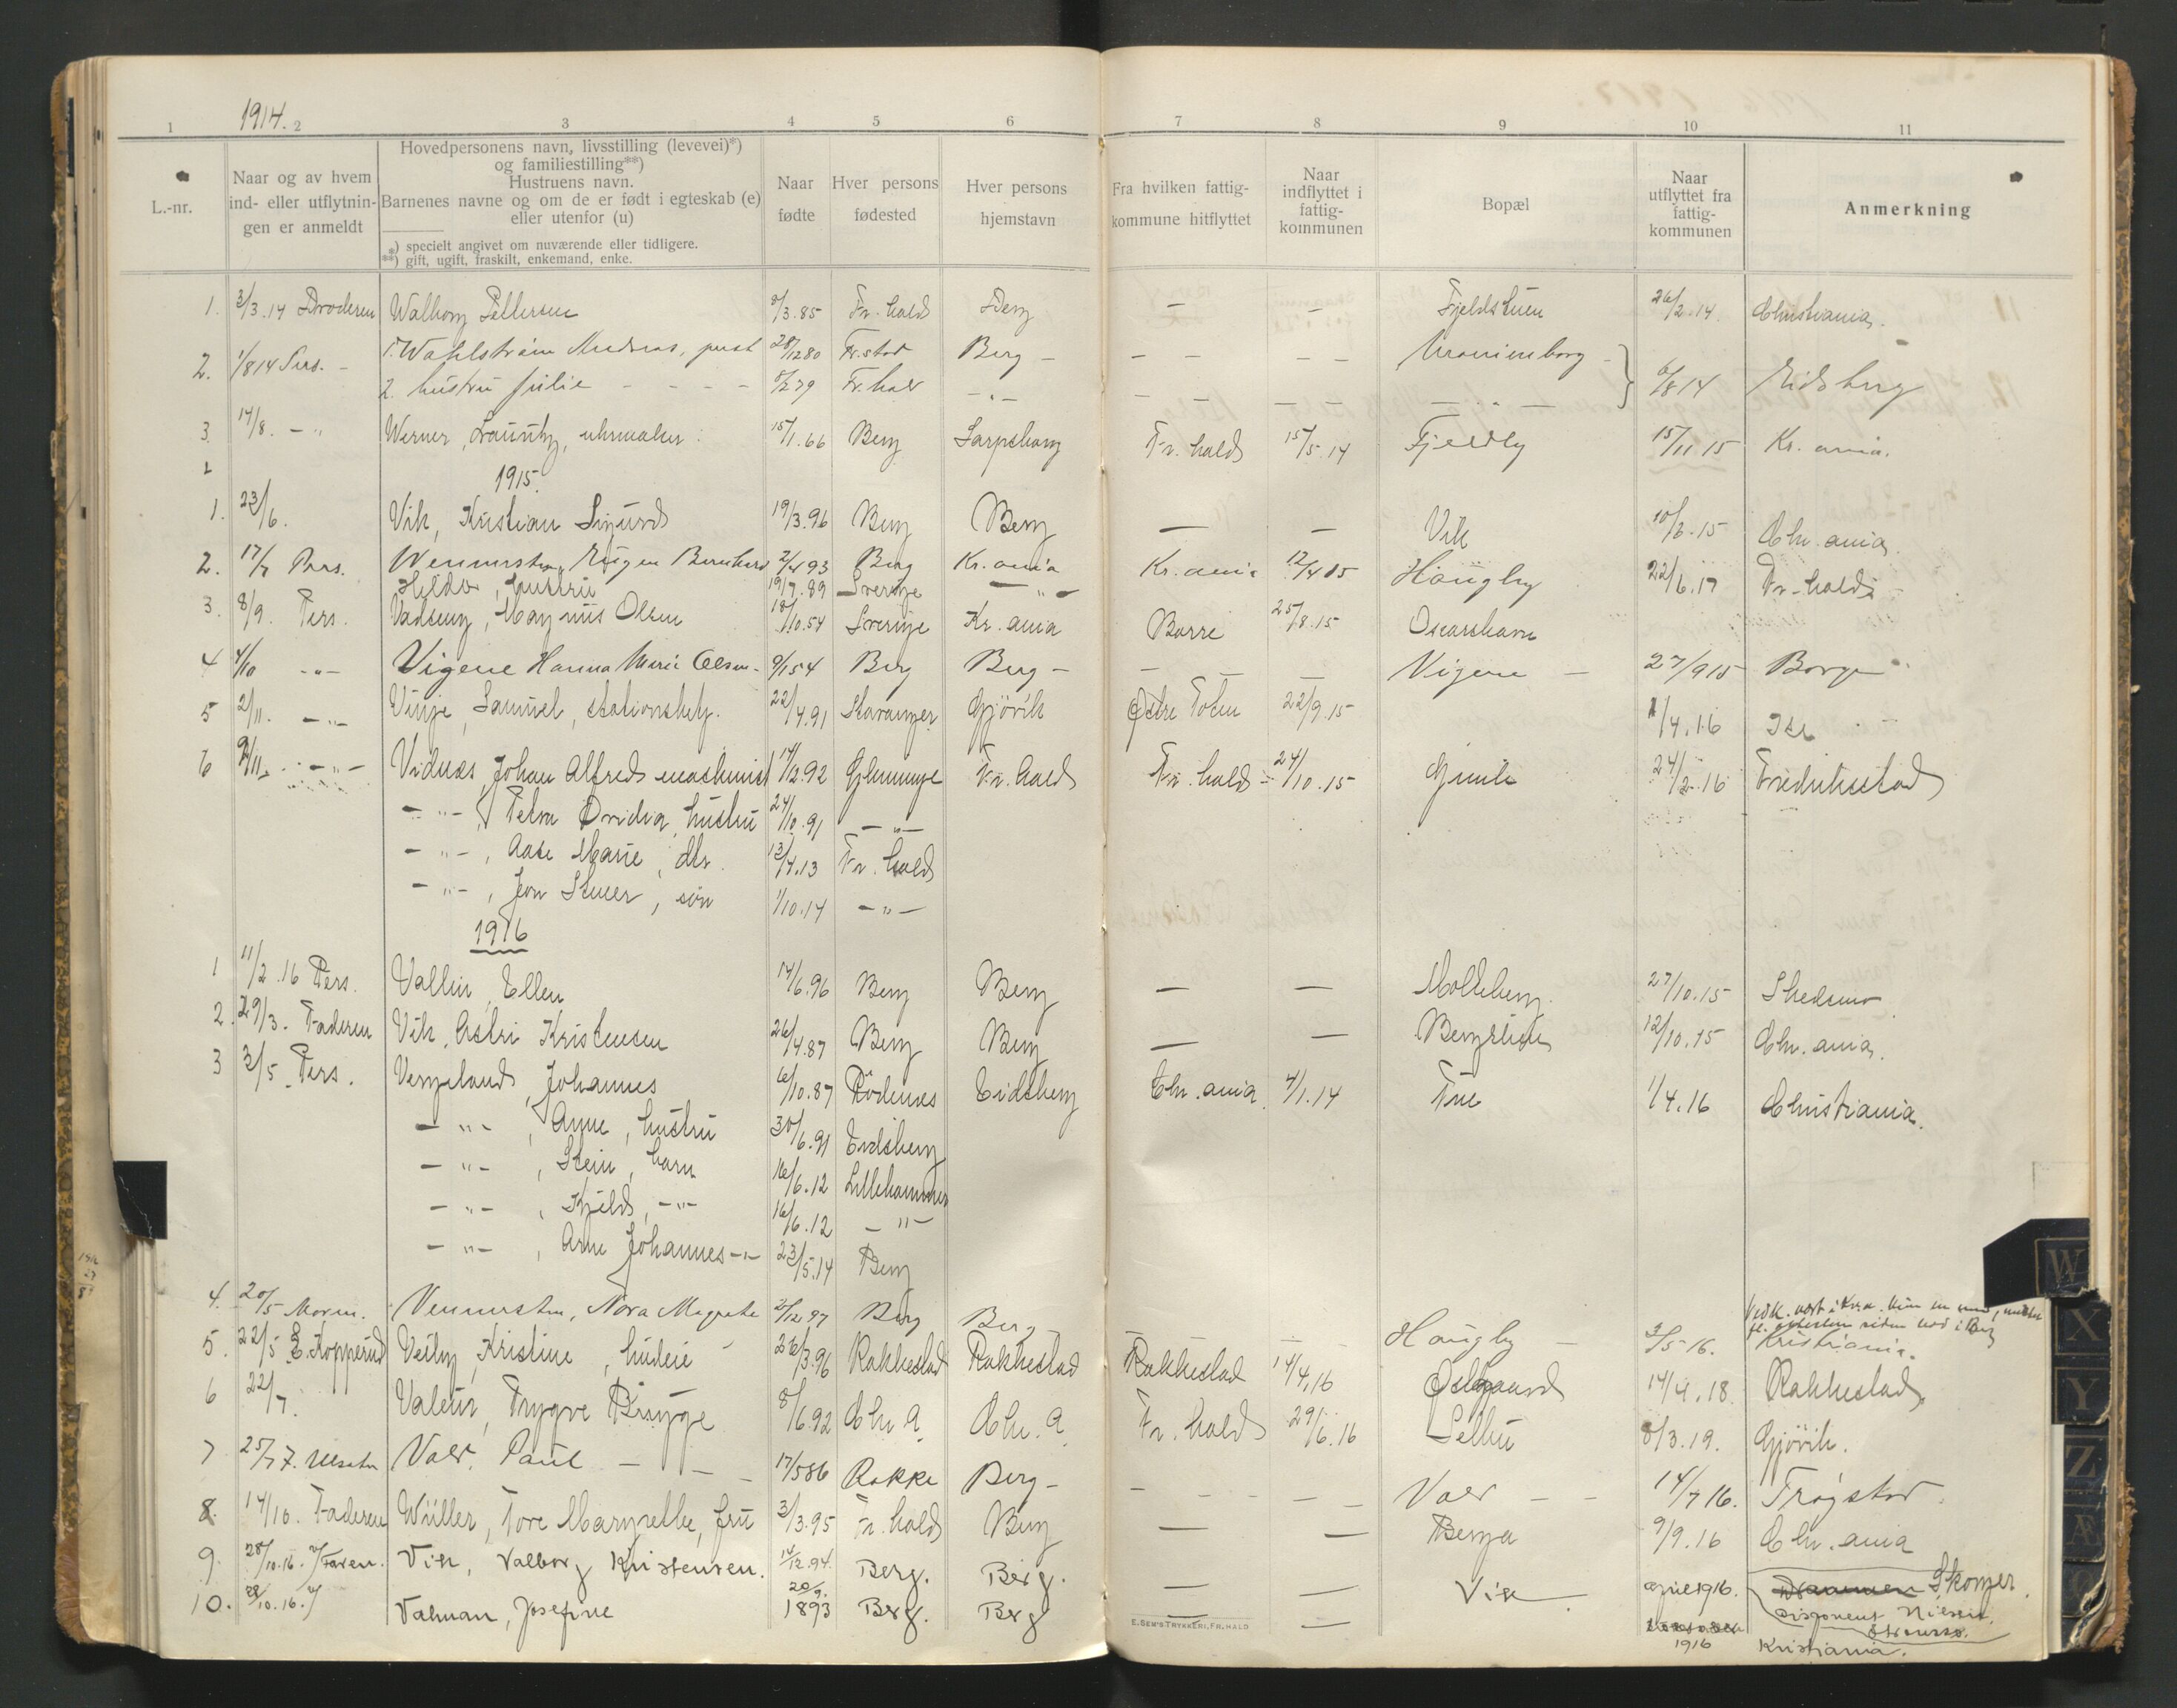 1914.
1 2 3 4 5 6 7 8 9 10 11
L.-nr.
Naar og av hvem ind- eller utflytnin-gen er anmeldt
Hovedpersonens navn, livsstilling (levevei)*)
og familiestilling**)
Hustruens navn.
Barnenes navne og om de er født i egteskab (e)
eller utenfor (u)
*) specielt angivet om nuværende eller tidligere.
**) gift, ugift, fraskilt, enkemand, enke.
Naar fødte
Hver persons fødested
Hver persons hjemstavn
Fra hvilken fattig-kommune hitflyttet
Naar indflyttet i fattig-kommunen
Bopæl
Naar utflyttet fra fattig-kommunen
Anmerkning
1. 3/3.14 Broderen Walborg Pettersen 9/3.85 Fr.hald Berg — — Fjeldstuen 26/2.14. Christiania.
2. 1/8 14 Pers. - 1. Wahlstrøm Andreas, 28/12 80 Fr.stad Berg - - - - - Uranienborg
2. hustru Julie - - - - 8/2 79 Fr.hald -"- - - - - -"- 6/8 14 Eidsberg
3 14/8. -"- Werner, Lauritz, uhrmaker. 15/1.66 Berg Sarpsborg Fr.hald 15/5.14 Fjeldby 15/11 15 Kr.ania.
1915.
1. 23/6. Vik, Kristian Sigurd 19/3.96 Berg Berg — — Vik 10/2.15 Chr.ania.
2. 17/7 Pers. Wennersten, Eugen Bernhard 2/4 93 Berg Kr.ania Kr.ania 12/4 15 Haugby 22/6.17 Fr.hald
Hilda, hustru 19/7.89 Sverige -"-
3. 8/9. Pers. Vadseng, Magnus Olsen 18/10.54 Sverige Kr.ania Borre 25/8.15 Oscarshavn
4 4/10 -"- Vigene Hanna Marie Olsen - 9/1 54 Berg Berg - — — Vigene - 27/9 15 Borge
5 2/11. -"- Vinje, Samuel, stationsbetj. 22/4.91 Stavanger Gjøvik Østre Toten 22/9.15 1/4.16 Ise
6 9/11. -"- Vidnes, Johan Alfred maskinist 14/12.92 Glemminge Fr.hald Fr.hald - 24/10.15 Gimle 24/2.16 Fredrikstad
-"-, Petra Ovidia, hustru 24/10.91 -"-
-"-, Aase Marie, dtr. 13/4.13 Fr.hald
-"-, Jon Steier, søn 1/10.14 -"-
1916
1 11/2.16 Pers. Vallin, Ellen 14/6.96 Berg Berg — — Molleberg. 27/10.15 Skedsmo
2. 29/3. Faderen Vik, Astri Kristensen 26/4.87 Berg Berg — — 12/10.15 Chr.ania.
3 3/5. Pers. Vergeland, Johannes 6/10.87 Rødenes Eidsberg Chr.ania. 4/1.14 Frue 1/4.16 Christiania.
-"-, Anne, hustru 30/6.91 Eidsberg
-"-, Stein, barn 16/6.12 Lillehammer
-"-, Kjeld, -"- 16/6.12 -"-
-"-, Arne Johannes -"- 23/5.14 Berg
4. 20/5 Moren. Vennersten, Nora Margrete 2/12 97 Berg Berg - — — Haugby - 3/5 16. Kristiania.
5. 22/5 E. Kopperud Veiby, Kristine, budeie 26/3.96 Rakkestad Rakkestad Rakkestad 14/4.16 Østgaard 14/4.18 Rakkestad.
6 22/7. Valeur, Trygve Brygge 8/6.92 Chr.a. Chr.a. Fr.hald 29/6.16 8/3.19. Gjøvik.
7 25/7 Vold, Paul - - - 17/5 86 Rokke Berg - - - - - Vold - - 14/7 16. Trøgstad
8. 14/10. Faderen Wüller, Tore Margrethe, fru 3/3.95 Fr.hald Berg — — Berga 9/9.16 Chr.ania
9. 28/10.16. v/Faren. Vik, Valborg Kristensen. 14/12.94. Berg. Berg. — — Vik. april 1916. Drammen Skoger.
Disponent Nielsen,
10. 28/10.16. v/ Valman, Josefine 20/9. 1893 Berg. Berg — — 1916 Kristiania.
E. SEM'S TRYKKERI, FR.HALD
W
X
Y
Z
Æ
Ø